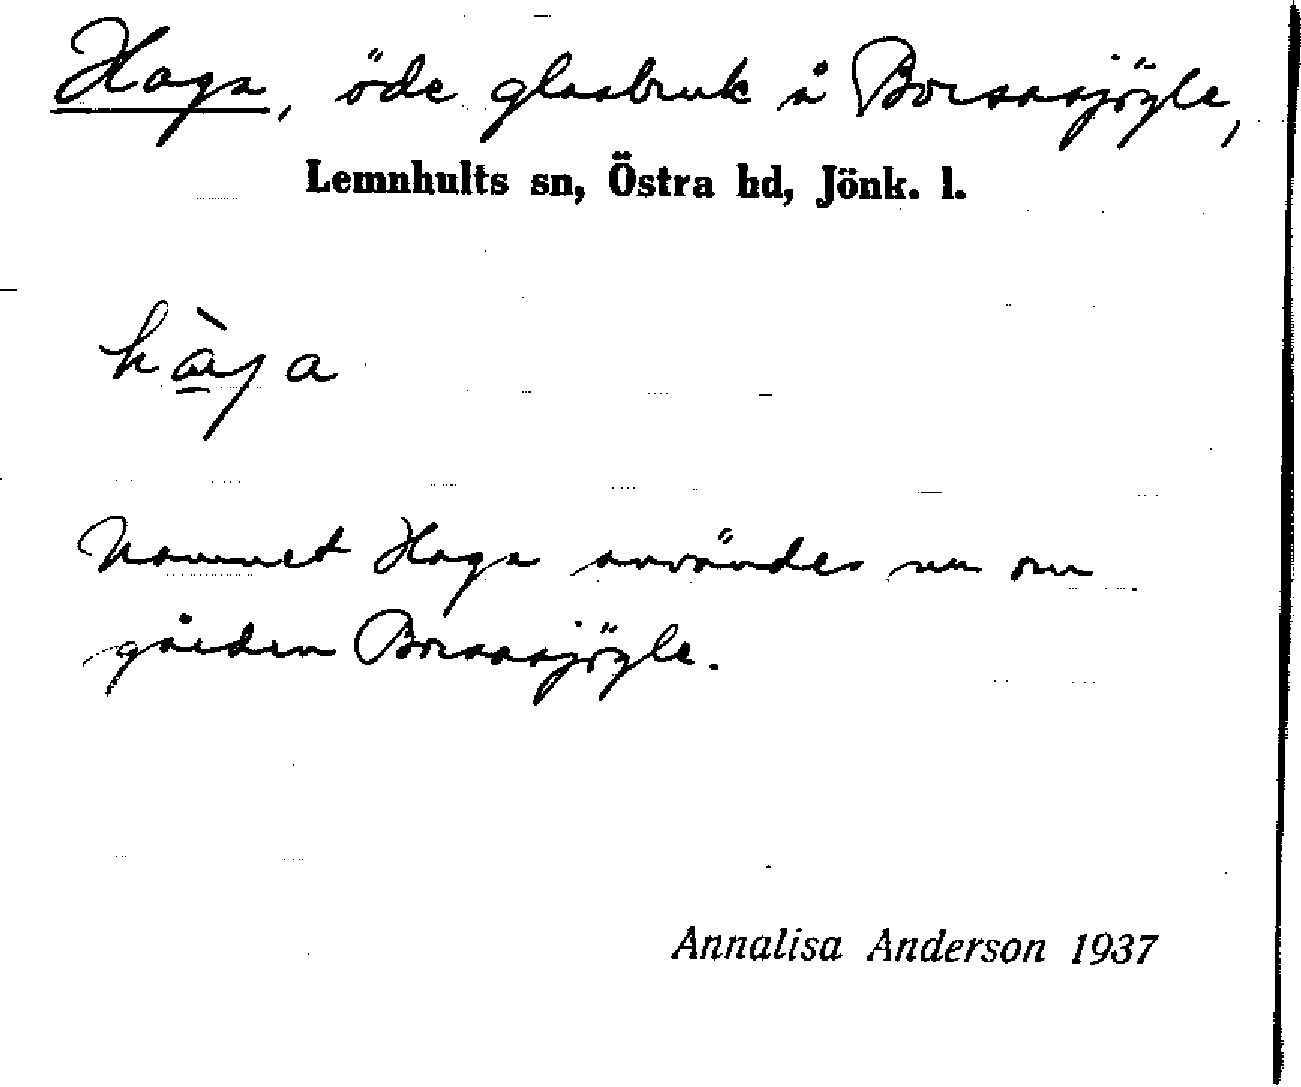 Haga, öde glasbruk å Borsnasjögle,
Lemnhults sn, Östra hd, Jönk. l.
hàga
Namnet Haga användes nu om
gården Borsnasjögle.
Annalisa Anderson 1937